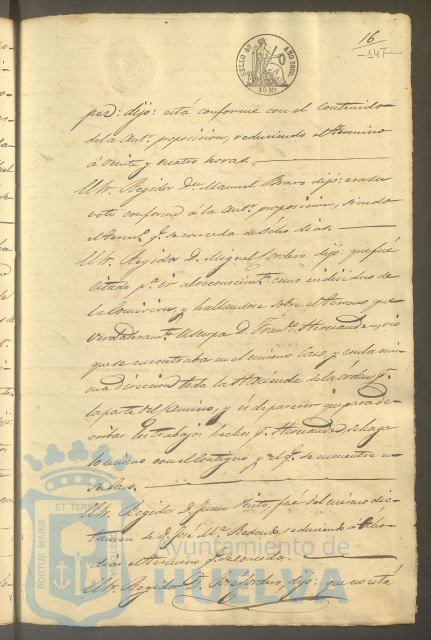 16
147
SELLO 4º AÑO 1860
40 Ms
ped: dijo: está conforme con el contenido
de la Antr. proposicion, reduciendo el termino
á veinte y cuatro horas.
El Sr. Regidor Dn. Manuel Bravo dijo: era su
voto conforme á la Antr. proposicion, siendo
el term.o q.e se conceda de dias.
El Sr. Regidor D. Miguel Cordero dijo: que fué
citado p.a ir al reconocim.to como individuo de
la Comision, y hallandose sobre el terreno que
verdaderam.te usurpa D. Fran.co Hernandez, vió
que se encontraba en el mismo caso, y en la mis-
ma direccion toda la Hacienda de la p.r
la parte del Camino, y es de parecer que para de-
rribar los trabajos hechos p.r Hernandez, se haga
lo mismo con el contiguo y el q.e se encuentre en
su caso.
El Sr. Regidor D. Juan fué del mismo dic-
tamen de D. José M.a Redondo, reduciendo á
dias el termino q.e se conceda.
El Sr. Regidor D. José Cordero, dijo: que no está
PORTUS MARIS ET TERRÆ
Ayuntamiento de
HUELVA